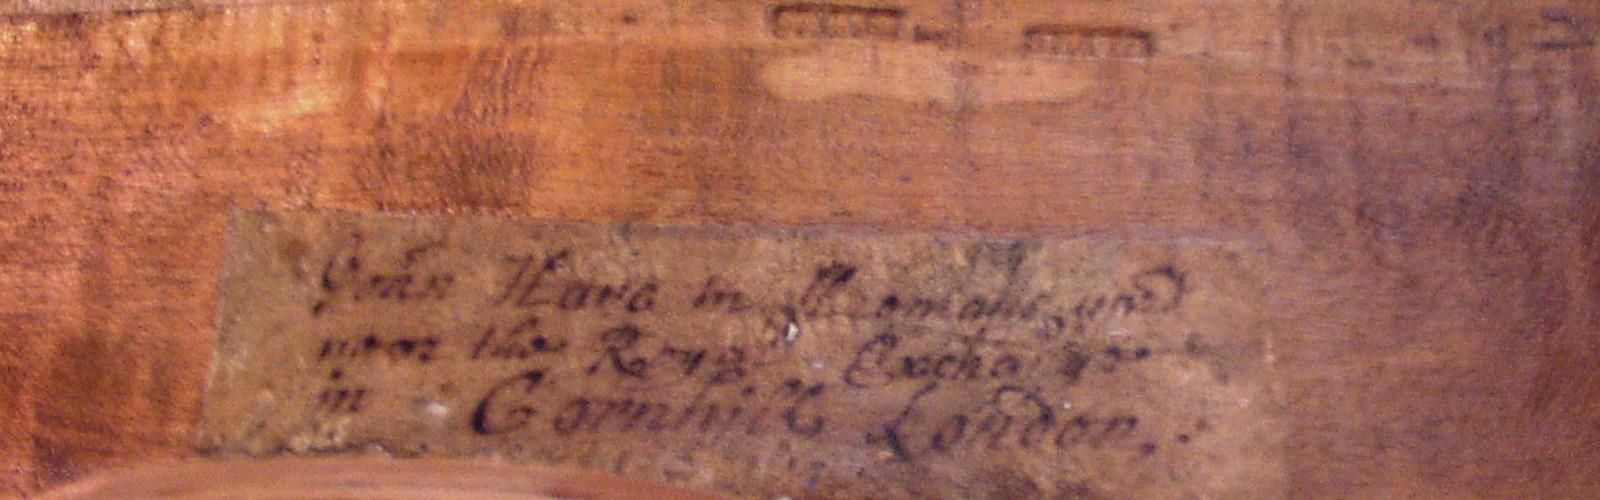 John Hare in Freemans yard
neer the Royal Exchange
in Cornhill London.